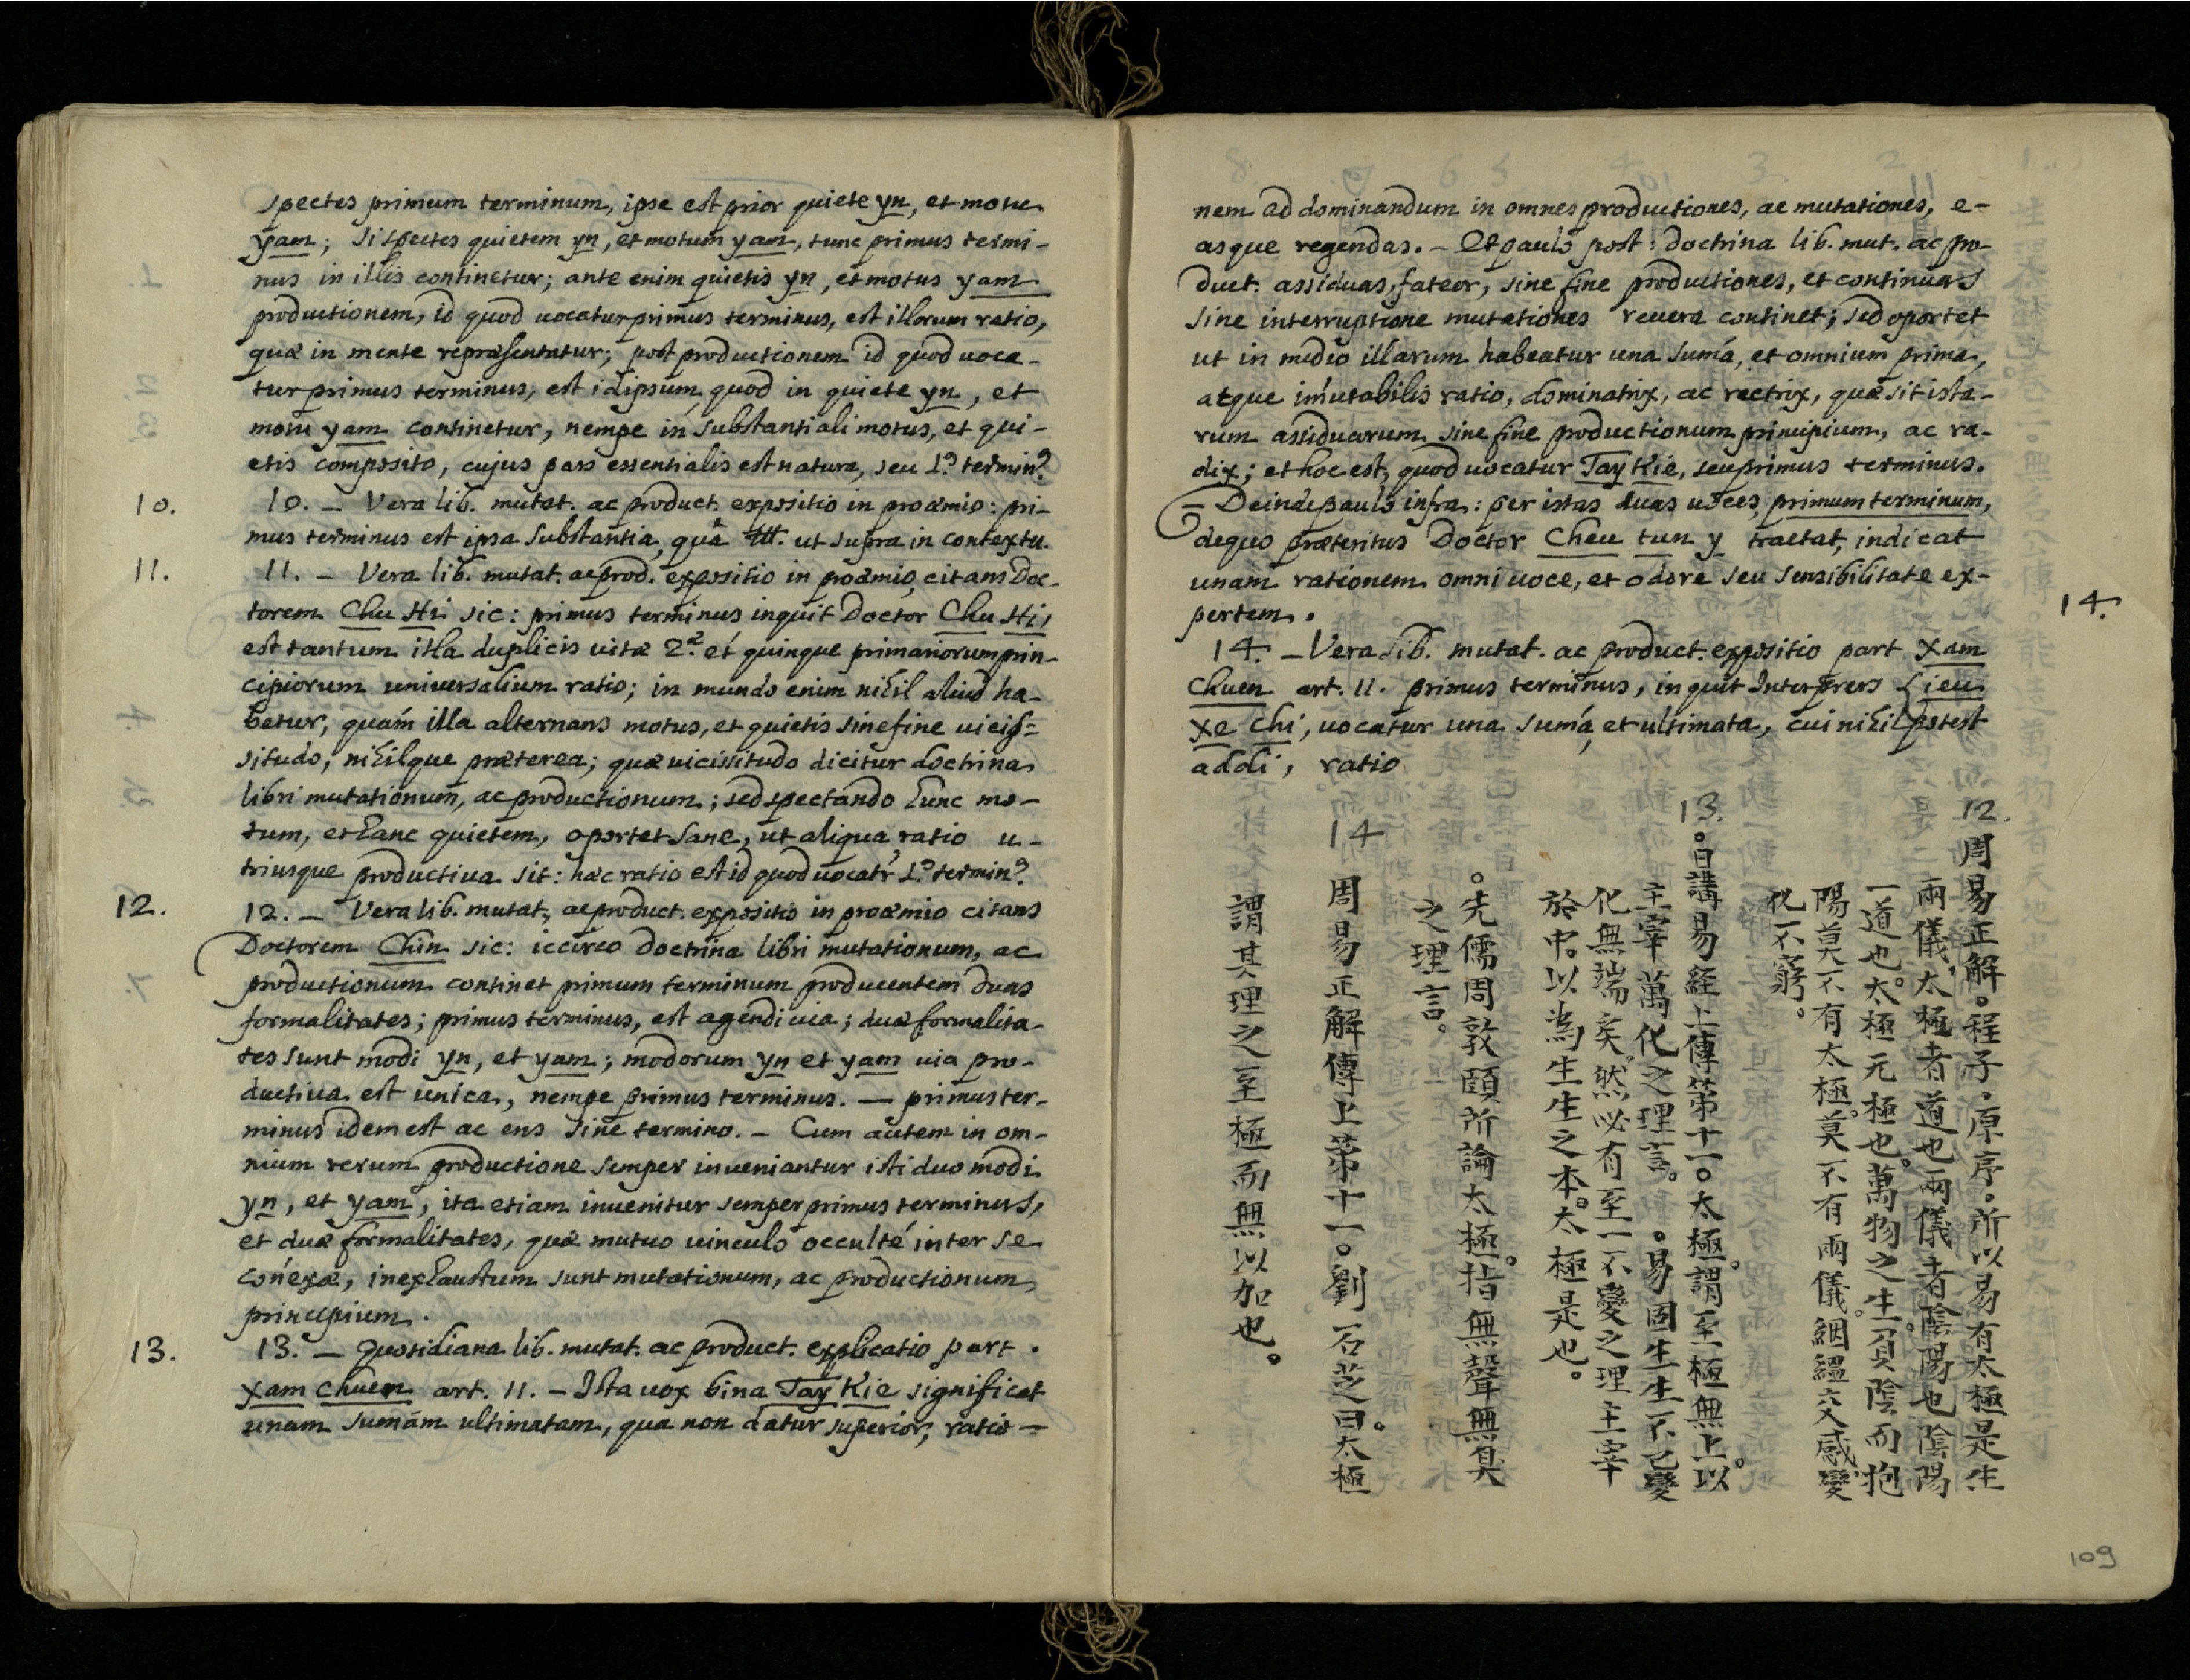 spectes primum terminum, ipse est prior quiete yn, et motu
yam; si spectes quietem yn, et motum yam, tunc primus termi-
nus in illis continetur; ante enim quietis yn, et motus yam
productionem, id quod uocatur primus terminus, est illorum ratio,
quæ in mente repræsentatur; post productionem id quod uoca-
tur primus terminus, est idipsum quod in quiete yn, et
motu yam continetur, nempe in substantiali motus, et qui-
etis composito, cujus pars essentialis est natura, seu 1.º termin.9
10.
10. — Vera lib. mutat. ac product. expositio in proæmio: pri-
mus terminus est ipsa substantia, quâ ut supra in contextu.
11.
11. — Vera lib. mutat. ac prod. expositio in proæmio, citans Doc-
torem Chu Hi sic: primus terminus inquit Doctor Chu Hi,
est tantum illa duplicis uitæ 2.æ et quinque primariorum prin-
cipiorum uniuersalium ratio; in mundo enim nihil aliud ha-
betur, quám illa alternans motus, et quietis sine fine uicis-
situdo, nihilque præterea; quæ uicissitudo dicitur doctrina
libri mutationum, ac productionum; sed spectando hunc mo-
tum, et hanc quietem, oportet sane, ut aliqua ratio u-
triusque productiua sit: hæc ratio est id quod uocatr 1.º termin.9
12.
12. — Vera lib. mutat. ac product. expositio in proæmio citans
Doctorem Chin sic: iccirco doctrina libri mutationum, ac
productionum continet primum terminum producentem duas
formalitates; primus terminus, est agendi uia; duæ formalita-
tes sunt modi yn, et yam; modorum yn et yam uia pro-
ductiua est unica, nempe primus terminus. — primus ter-
minus idem est ac ens sine termino. — Cum autem in om-
nium rerum productione semper inueniantur isti duo modi
yn, et yam, ita etiam inuenitur semper primus terminus,
et duæ formalitates, quæ mutuo uinculo occulté inter se
conéxæ, inexhaustum sunt mutationum, ac productionum
principium.
13.
13. — Quotidiana lib. mutat. ac product. explicatio part.
Xam chuen art. 11. — Ista uox bina Tay Kie significat
unam sumám ultimatam, qua non datur superior, ratio-
nem ad dominandum in omnes productiones, ac mutationes, e-
asque regendas. — Et paulo post: doctrina lib. mut. ac pro-
duct. assiduas, fateor, sine fine productiones, et continuas
sine interruptione mutationes reuera continet; sed oportet
ut in medio illarum habeatur una sumá, et omnium prima,
atque imútabilis ratio, dominatrix, ac rectrix, quæ sit ista-
rum assiduarum sine fine productionum principium, ac ra-
dix; et hoc est, quod uocatur Tay Kie, seu primus terminus.
— Deinde paulo infra: per istas duas uoces, primum terminum,
de quo præteritus Doctor Cheu tun y tractat, indicat
unam rationem omni uoce, et odore seu sensibilitate ex-
pertem.
14.
14. — Vera lib. mutat. ac product. expositio part Xam
Chuen art. 11. primus terminus, inquit Interpres Lieu
Xe Chi, uocatur una sumá, et ultimata, cui nihil potest
addi, ratio
12.
周易正解。程子。原序。所以易有太極是生
兩儀。太極者道也兩儀者陰陽也陰陽
一道也。太極元極也。萬物之生。負陰而抱
陽莫不有太極。莫不有兩儀。絪縕交感。變
化不窮。
13.
。日講易經上傳第十一。太極。謂至極無上。以
主宰萬化之理言。。易固生生不已變
化無端矣。然必有至一不變之理主宰
於中。以為生生之本。太極是也。
。先儒周敦頤所論太極。指無聲無臭
之理言。
14
周易正解傳上第十一。劉石芝曰。太極
謂其理之至極而無以加也。
109